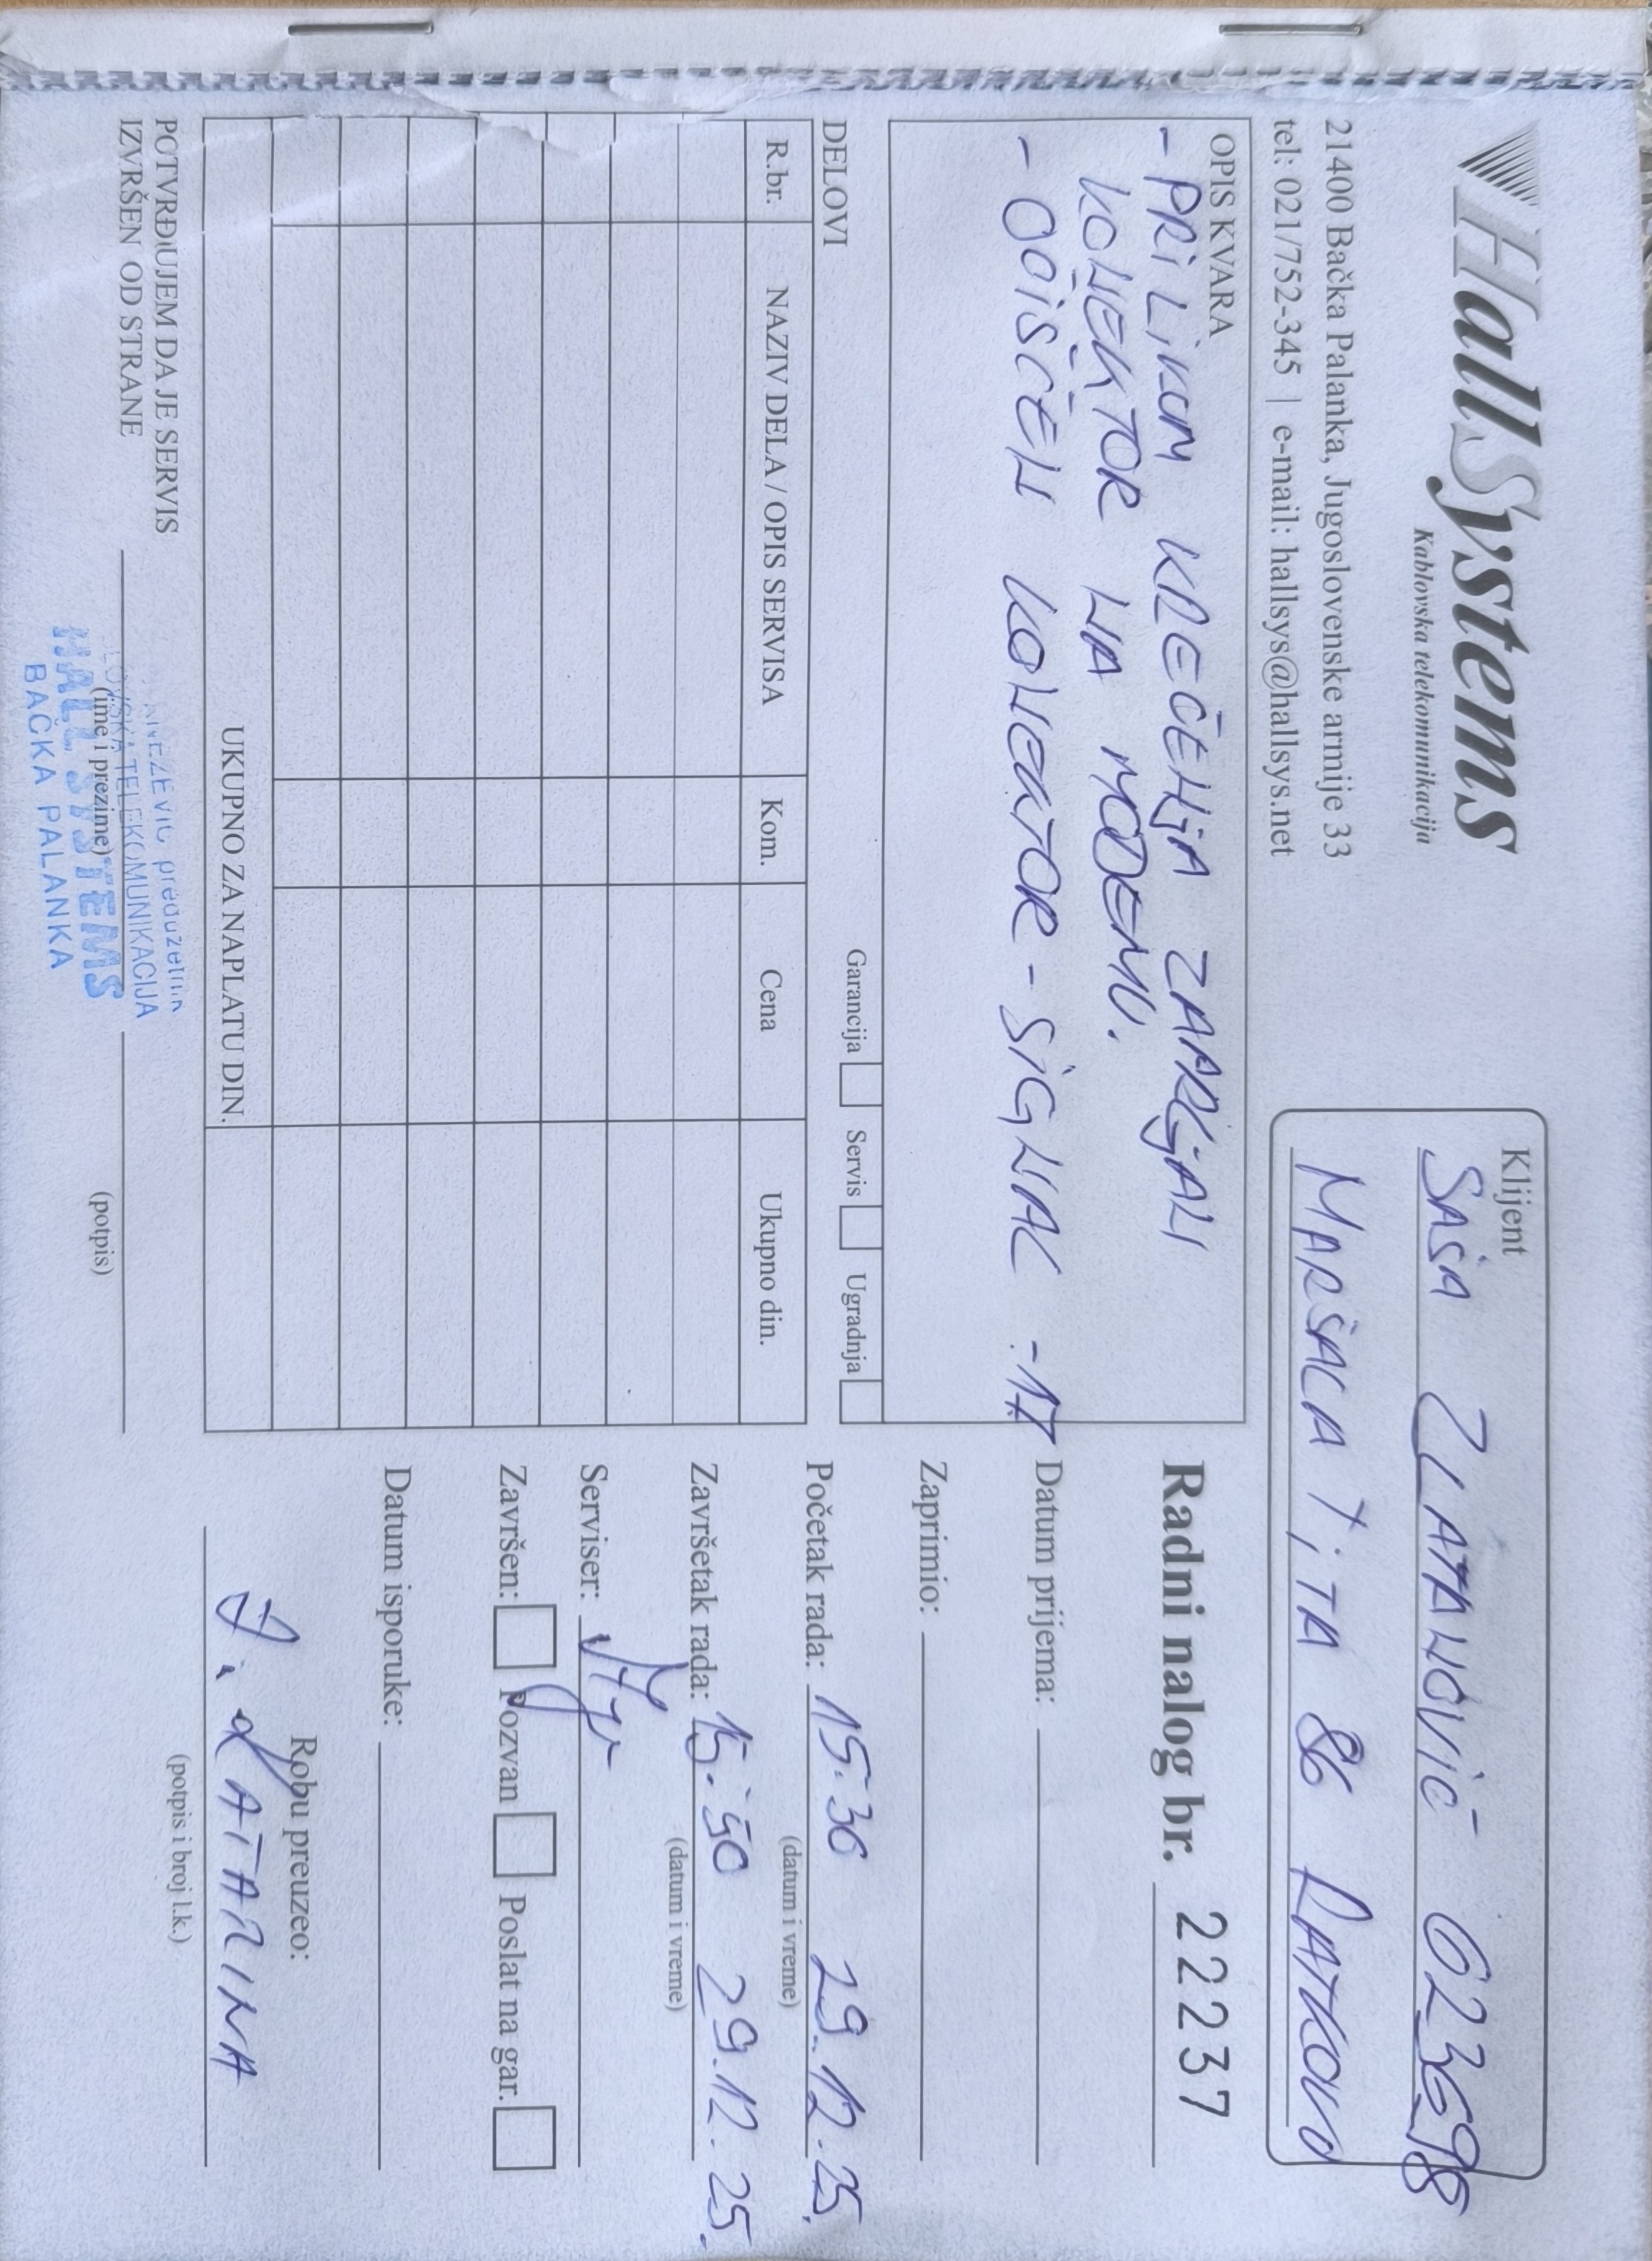 HallSystems
Kablovska telekomunikacija
21400 Bačka Palanka, Jugoslovenske armije 33
tel: 021/752-345 | e-mail: hallsys@hallsys.net
Klijent
SAŠA ZLATANOVIĆ 623698
MARŠALA TITA 86 RATKOVO
OPIS KVARA
- PRILIKOM KREČENJA ZAPRLJALI
KONEKTOR NA MODEMU.
- OČIŠĆEN KONEKTOR - SIGNAL -17
Radni nalog br. 22237
Datum prijema:
Zaprimio:
Početak rada: 15:30 29.12.25.
(datum i vreme)
Završetak rada: 15:50 29.12.25.
(datum i vreme)
Serviser:
Završen: Pozvan Poslat na gar.
Datum isporuke:
Robu preuzeo:
ZLATARINA
(potpis i broj l.k.)
Garancija Servis Ugradnja
DELOVI
R.br. NAZIV DELA / OPIS SERVISA Kom. Cena Ukupno din.
UKUPNO ZA NAPLATU DIN.
POTVRĐUJEM DA JE SERVIS
IZVRŠEN OD STRANE
(ime i prezime)
(potpis)
preduzetnik
TELEKOMUNIKACIJA
HALL SYSTEMS
BAČKA PALANKA